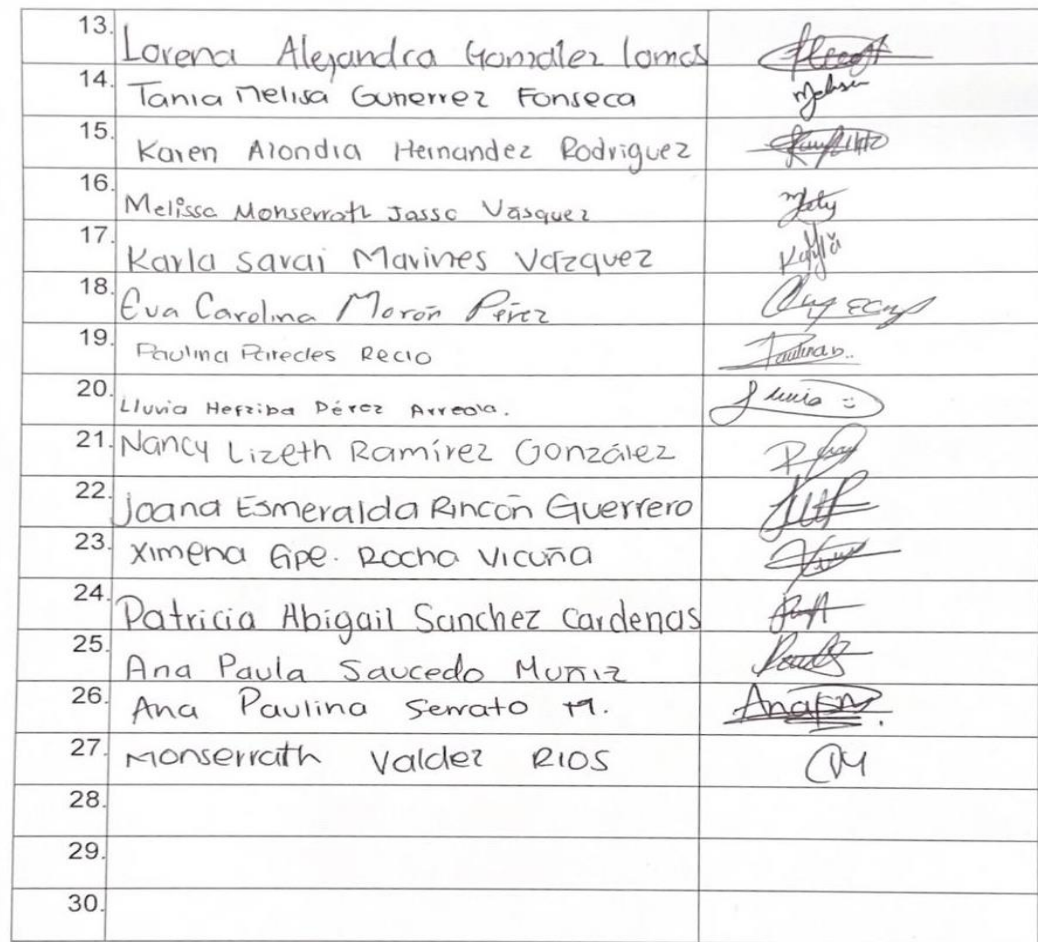 13. Lorena Alejandra González lomas
14. Tania Melisa Gutierrez Fonseca Melisa
15. Karen Alondra Hernandez Rodriguez
16. Melissa Monserrath Jasso Vásquez Mely
17. Karla Sarai Marines Vazquez Karla
18. Eva Carolina Morón Pérez
19. Paulina Paredes Recio Paulina
20. Lluvia Hefziba Pérez Arreola. Lluvia :)
21. Nancy Lizeth Ramírez González
22. Joana Esmeralda Rincón Guerrero
23. Ximena Gpe. Rocha Vicuña
24. Patricia Abigail Sanchez Cardenas
25. Ana Paula Saucedo Muñiz
26. Ana Paulina Serrato M.
27. Monserrath Valdez RIOS
28.
29.
30.